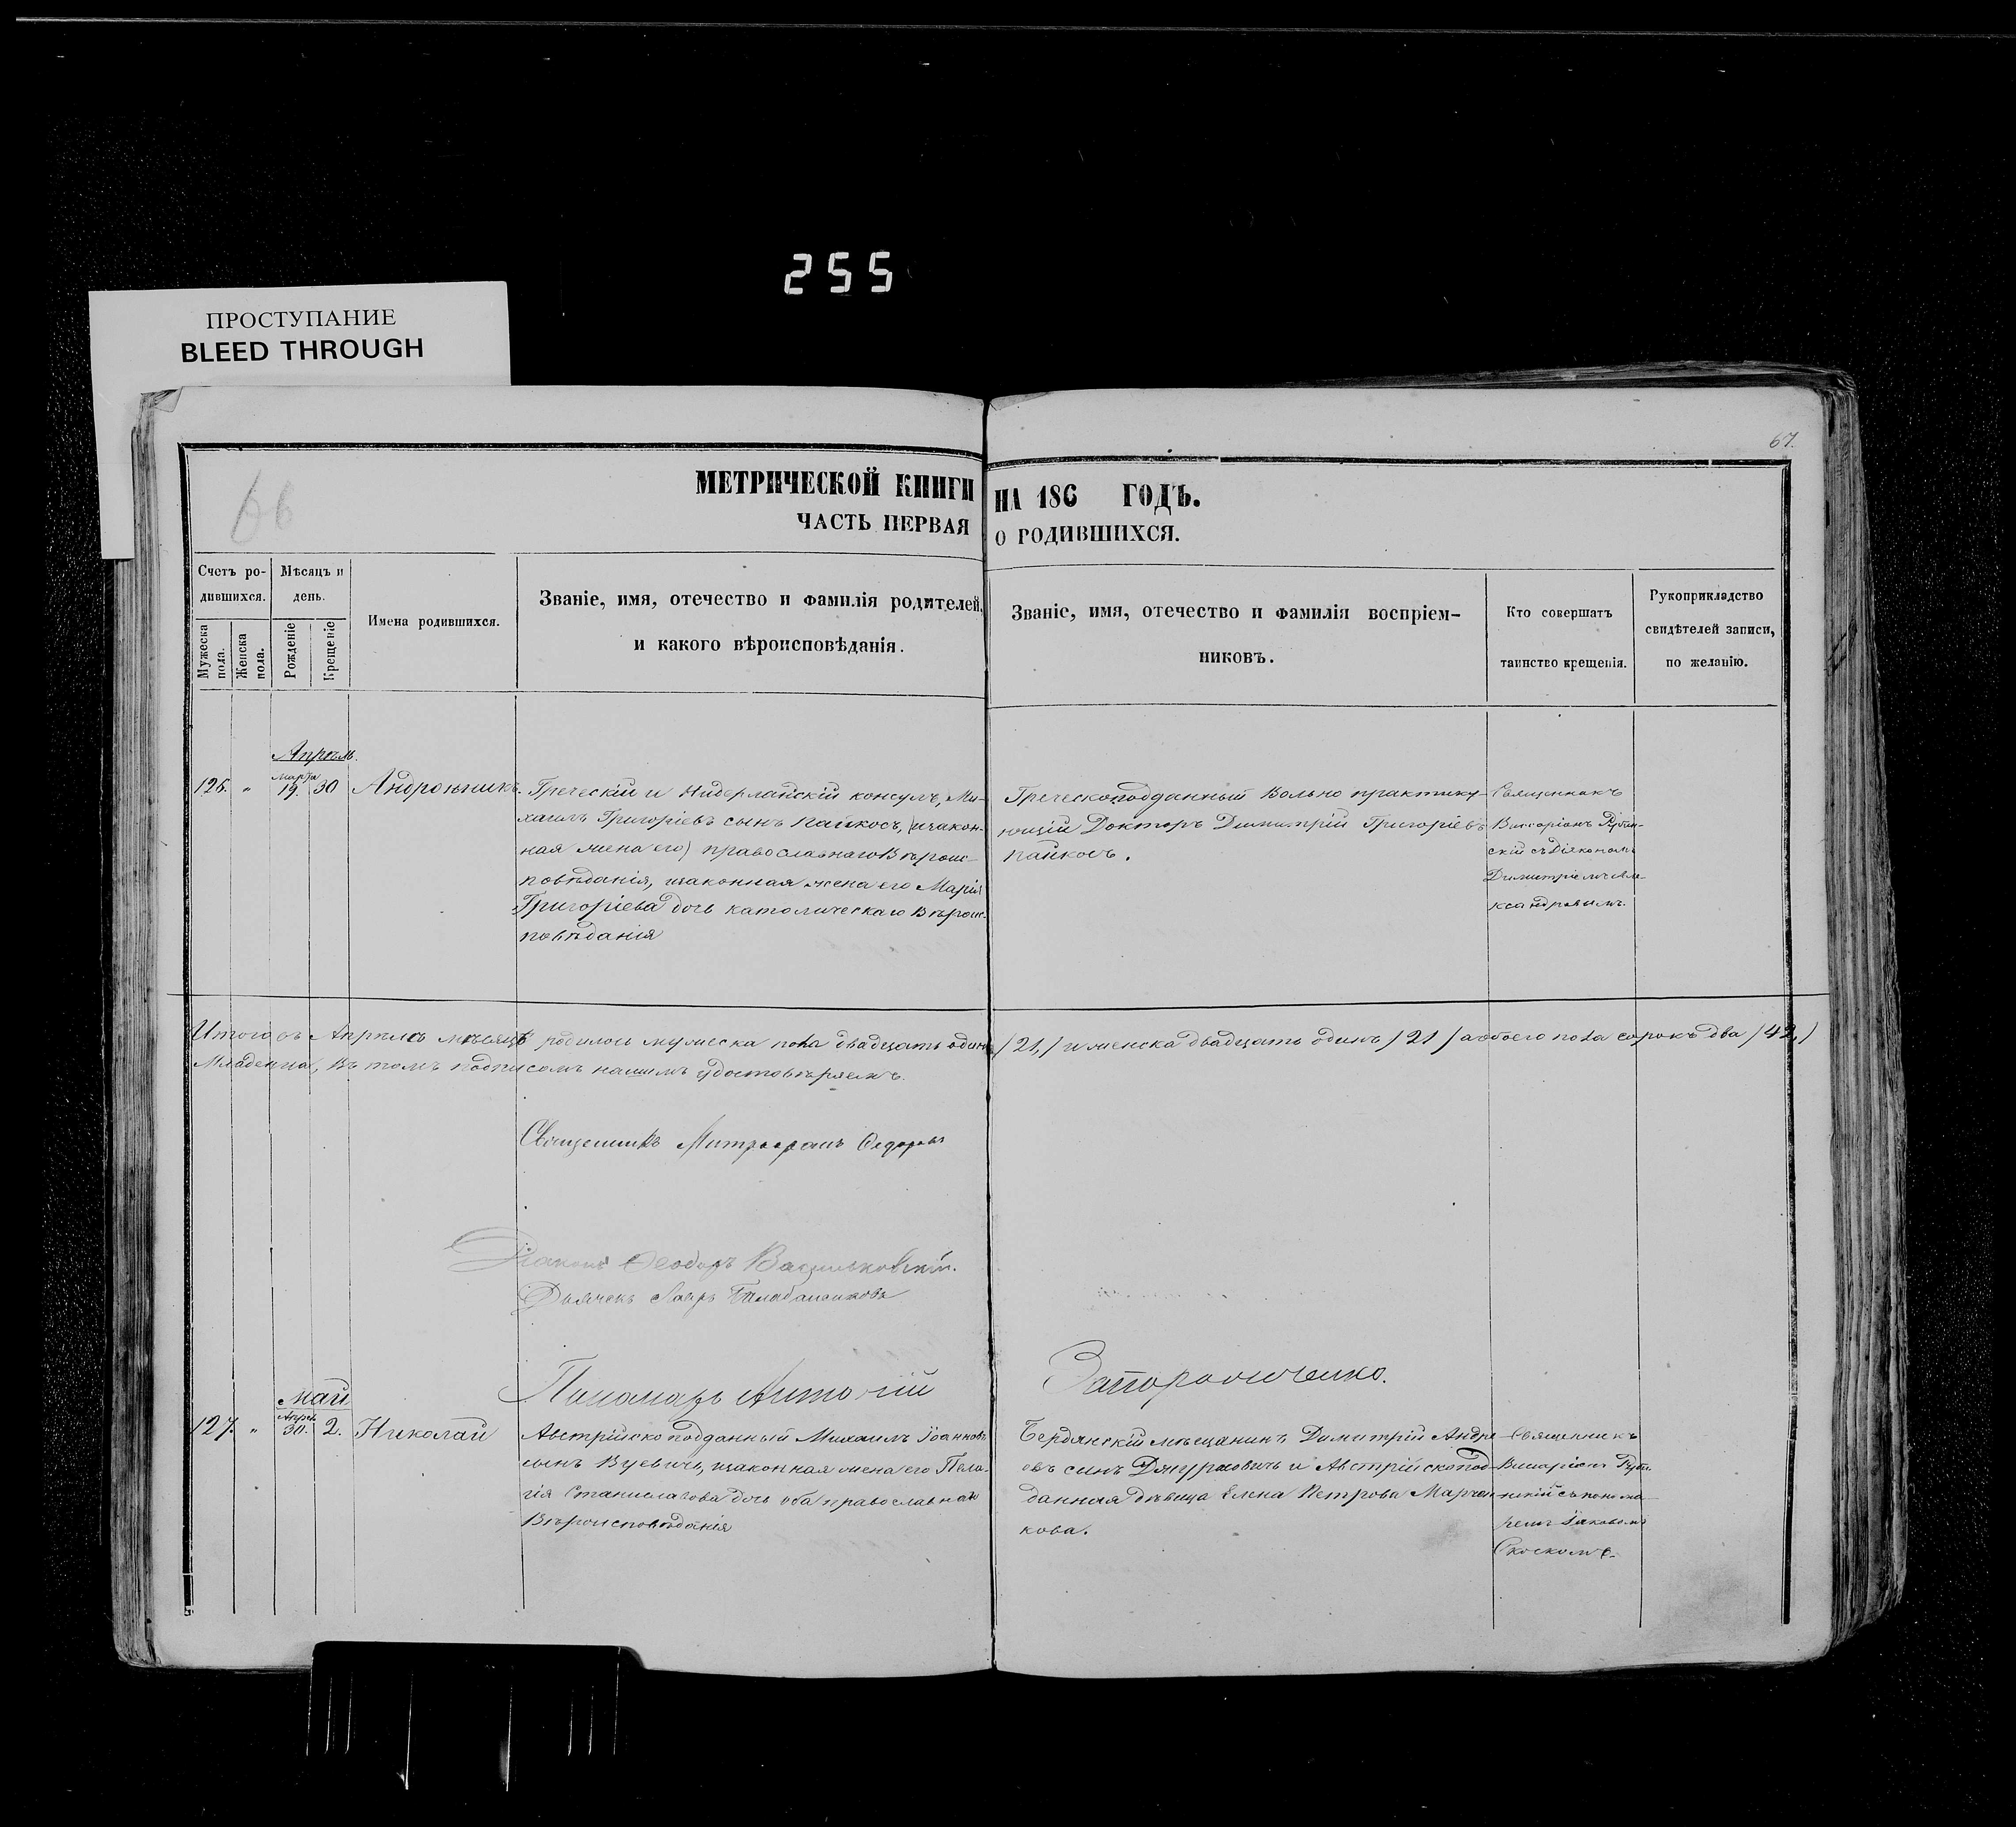 255
ПРОСТУПАНИЕ
BLEED THROUGH
67.
66
МЕТРИЧЕСКОЙ КНИГИ НА 186 ГОДЪ.
ЧАСТЬ ПЕРВАЯ О РОДИВШИХСЯ.
Счетъ ро-
дившихся.
Мужеска пола.
Женска пола.
Мѣсяцъ и
день.
Рожденіе
Крещеніе
Имена родившихся.
Званіе, имя, отечество и фамилія родителей,
и какого вѣроисповѣданія.
Званіе, имя, отечество и фамилія воспріем-
никовъ.
Кто совершатъ
таинство крещенія.
Рукоприкладство
свидѣтелей записи,
по желанію.
Апрѣль.
126.
"
марта
19.
30
Андроникъ.
Греческій и Нидерландскій консулъ, Ми-
хаилъ Григоріевъ сынъ Пайкосъ, (изакон-
ная жена его) православнаго Вѣроис-
повѣданія, изаконная жена его Марія
Григоріева дочь католическаго Вѣроис-
повѣданія
Греческоподданный Вольно практику-
ющій Докторъ Димитрій Григоріевъ
Пайкосъ.
Священникъ
Виссаріонъ
скій съ Діякономъ
Димитріемъ Але-
ксандровымъ.
Итого въ Апрѣлѣ мѣсяцѣ родилось мужеска пола двадцать одинъ /21,/ и женска двадцать одинъ /21/ а обоего пола сорокъ два /42,/
Младенца, Въ томъ подписомъ нашимъ удостовѣряемъ.
Священникъ Митрофанъ Федоровъ
Діаконъ Ѳеодоръ
Дьячекъ
Пономарь Антоній Запорожченко.
май
127.
"
Апрѣл
30.
2.
Николай
Австрійско подданный Михаилъ Іоанновъ
сынъ Вуевичъ, изаконная жена его Пела-
гія Станиславова дочь оба православнаго
Вѣроисповѣданія
Бердянскій мѣщанинъ Димитрій Андре-
евъ сынъ и Австрійскопод-
данная дѣвица Елена Петрова Марчен-
кова.
Священникъ
Висаріонъ
скій съ понома-
ремъ Іаковомъ